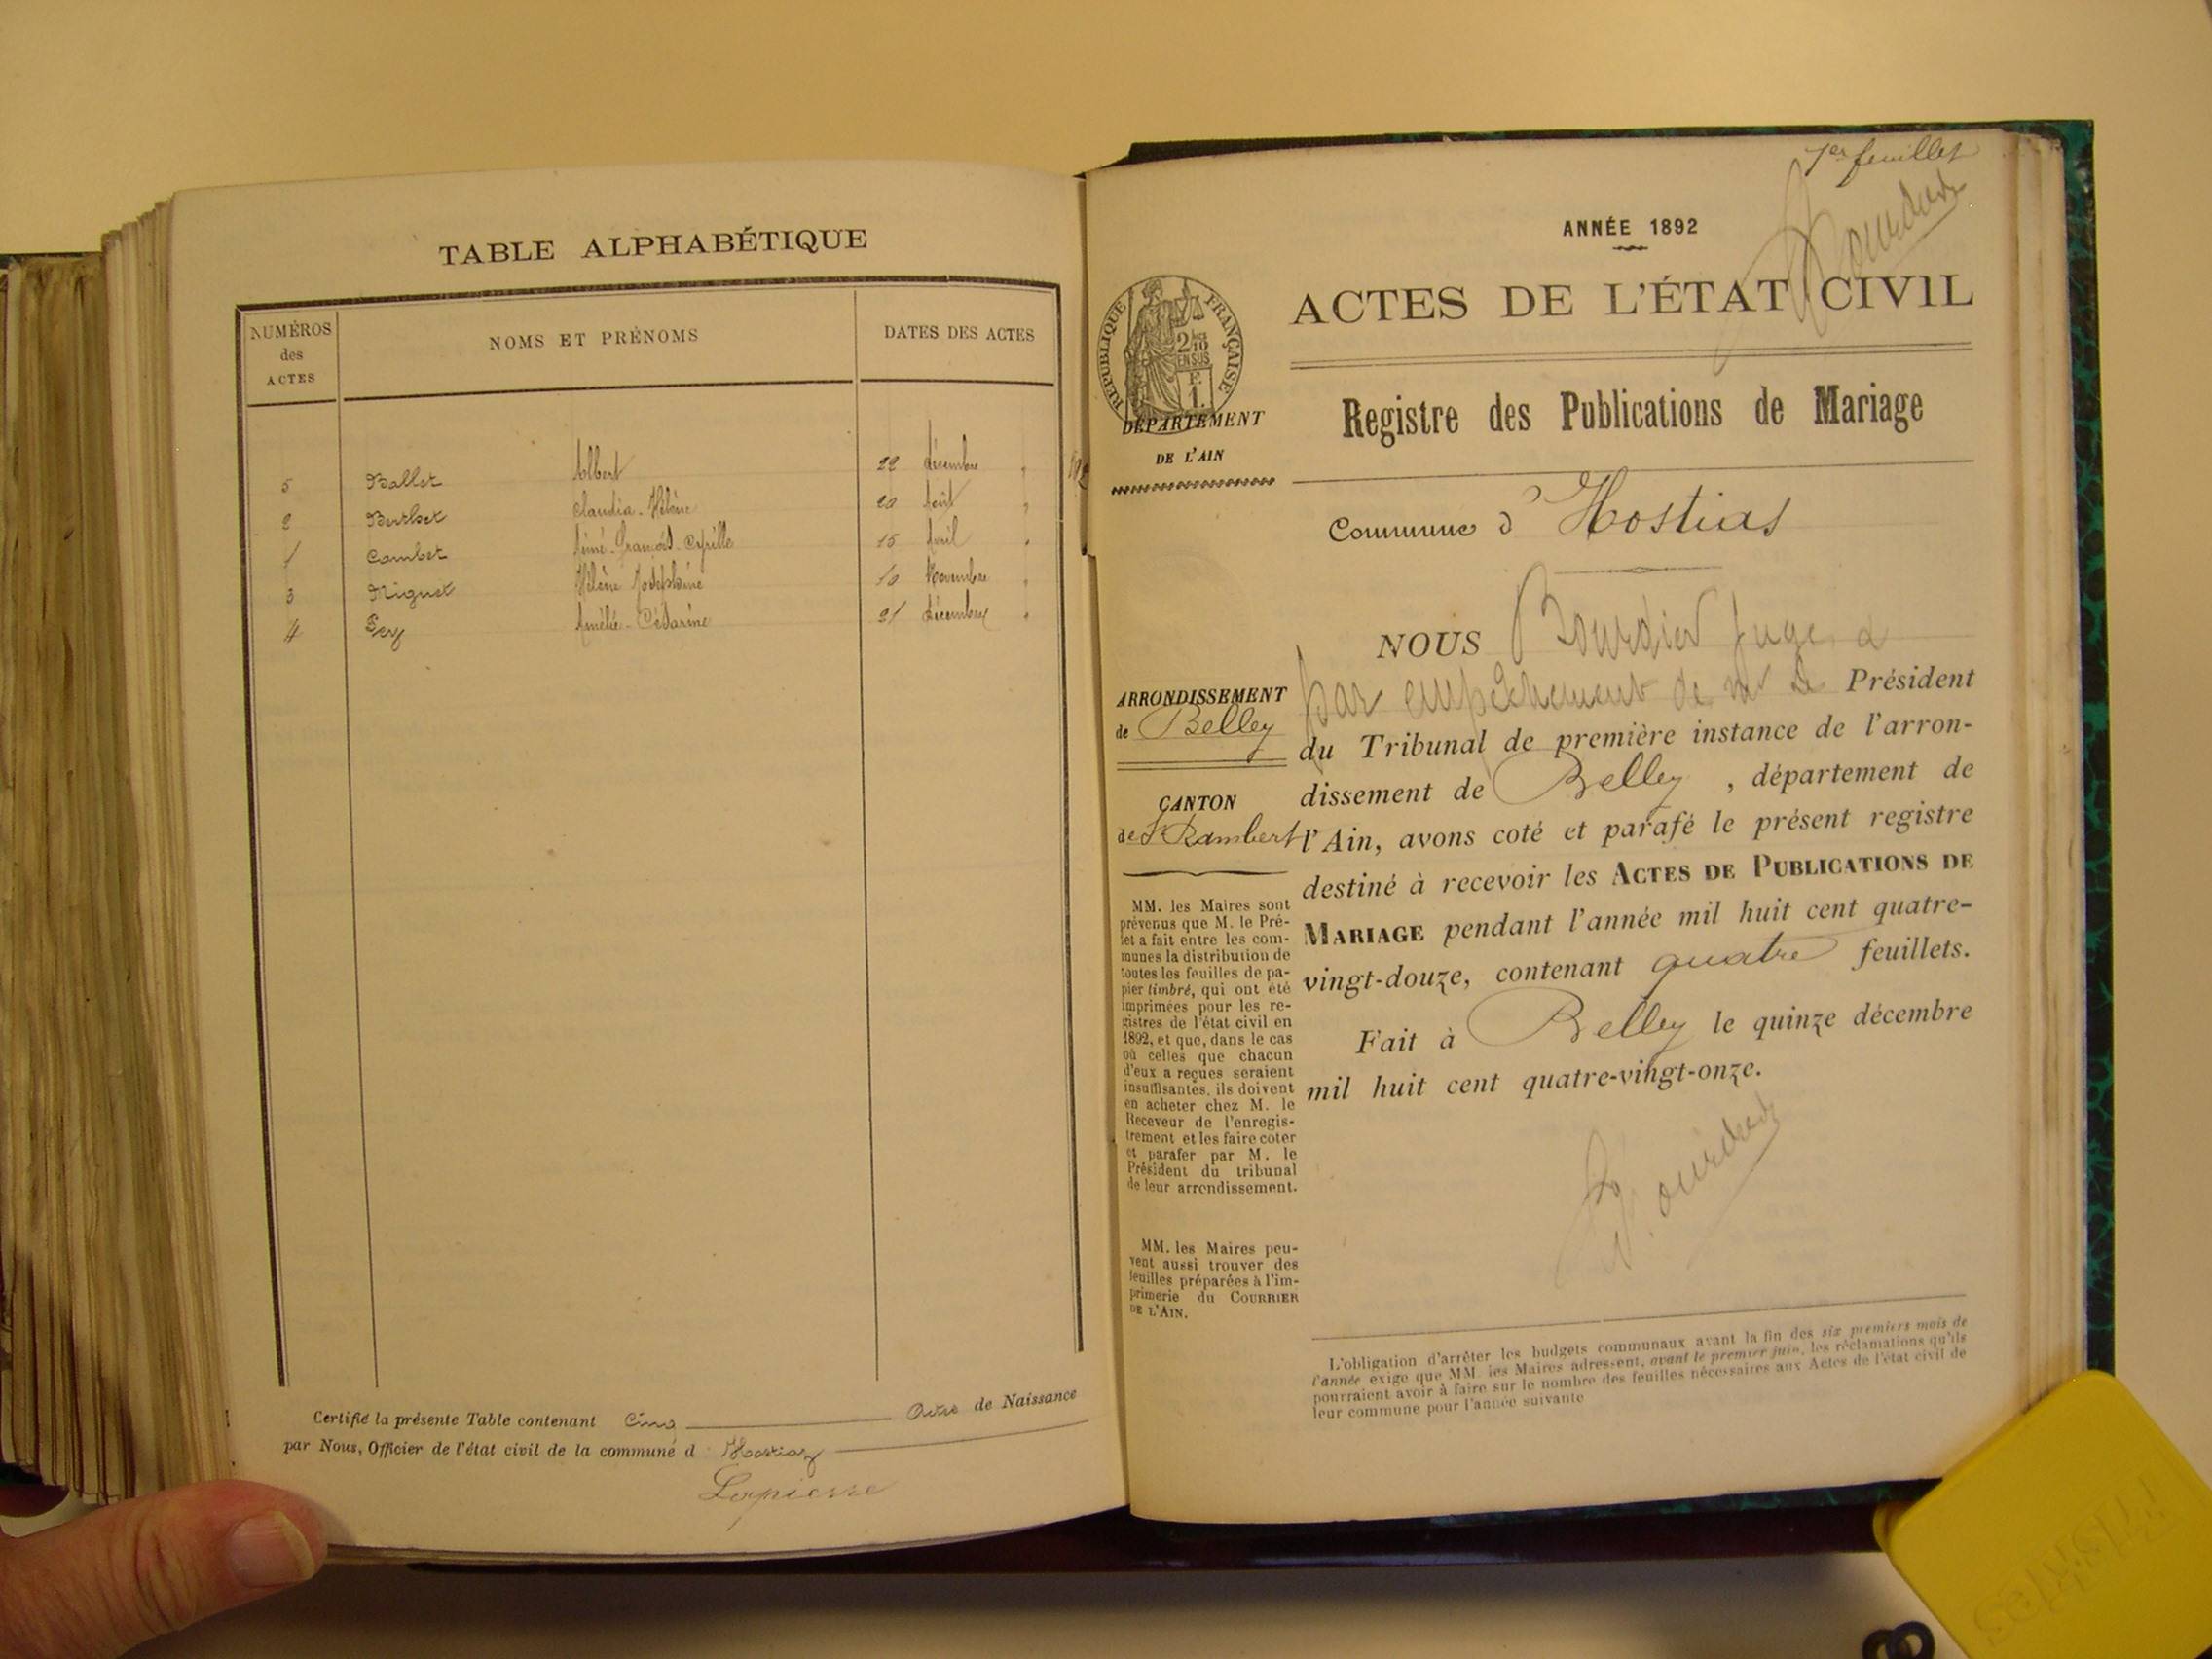 TABLE ALPHABÉTIQUE
NUMÉROS des ACTES
NOMS ET PRÉNOMS
DATES DES ACTES
5 Ballet Albert 22 décembre "
2 Berthet Claudia-Hélène 20 Août "
1 Combet Aimé-François-Cyrille 15 Avril "
3 Miguet Hélène Joséphine 10 Novembre "
4 Pey Amélie-Césarine 21 décembre "
Certifié la présente Table contenant Cinq Actes de Naissance
par Nous, Officier de l'état civil de la commune d Hostiaz
Lapierre
1er feuillet
ANNÉE 1892
ACTES DE L'ÉTAT CIVIL
RÉPUBLIQUE FRANÇAISE
2/10
EN SUS
F.
1.
DÉPARTEMENT
DE L'AIN
Registre des Publications de Mariage
Commune d'Hostias
ARRONDISSEMENT
de Belley
CANTON
de St Rambert
MM. les Maires sont
prévenus que M. le Pré-
fet a fait entre les com-
munes la distribution de
toutes les feuilles de pa-
pier timbré, qui ont été
imprimées pour les re-
gistres de l'état civil en
1892, et que, dans le cas
où celles que chacun
d'eux a reçues seraient
insuffisantes, ils doivent
en acheter chez M. le
Receveur de l'enregis-
trement et les faire coter
et parafer par M. le
Président du tribunal
de leur arrondissement.
MM. les Maires peu-
vent aussi trouver des
feuilles préparées à l'im-
primerie du COURRIER
DE L'AIN.
NOUS Bourdier Juge,
par empêchement de Mr le Président
du Tribunal de première instance de l'arron-
dissement de Belley, département de
l'Ain, avons coté et parafé le présent registre
destiné à recevoir les ACTES DE PUBLICATIONS DE
MARIAGE pendant l'année mil huit cent quatre-
vingt-douze, contenant quatre feuillets.
Fait à Belley le quinze décembre
mil huit cent quatre-vingt-onze.
L'obligation d'arrêter les budgets communaux avant la fin des six premiers mois de
l'année exige que MM. les Maires adressent, avant le premier juin, les réclamations qu'ils
pourraient avoir à faire sur le nombre des feuilles nécessaires aux Actes de l'état civil de
leur commune pour l'année suivante